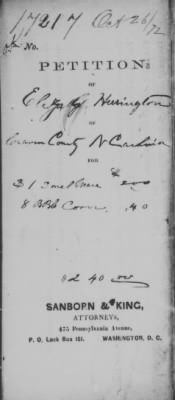 17217 Oct 26/72
No.
PETITION
OF
Herrington
OF
Craven County N Carolina
FOR
$ 1 200
8 Bbls Corn 40
40 00
SANBORN & KING,
ATTORNEYS,
475 Pennsylvania Avenue,
P. O. Lock Box 151. WASHINGTON, D. C.